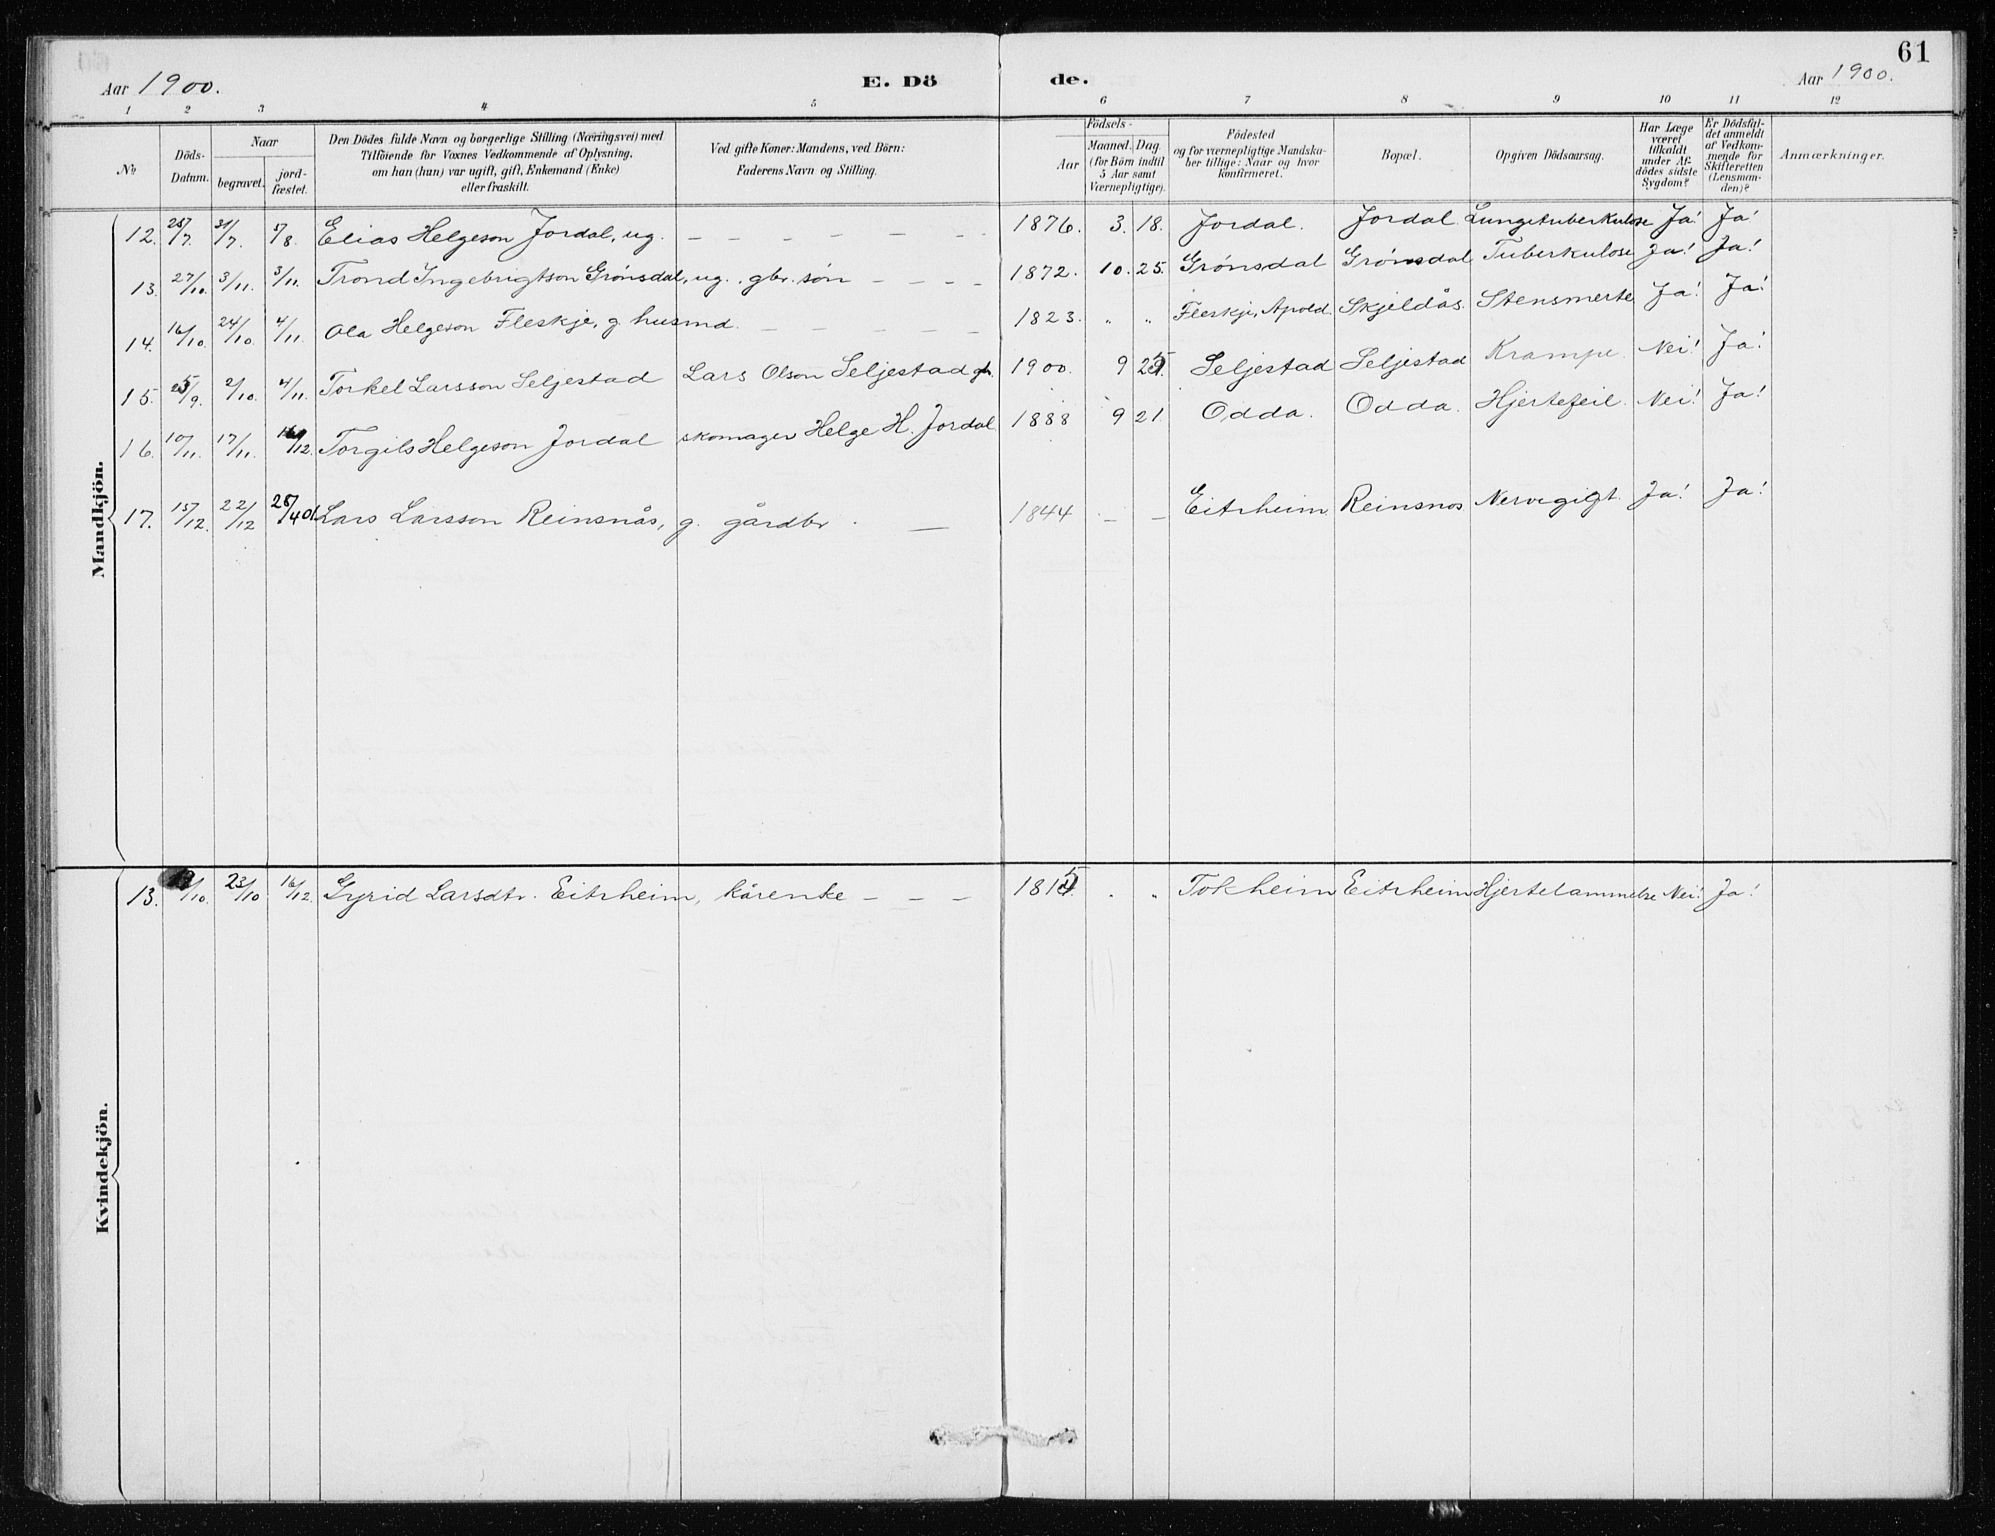 61
Aar 1900. E. Dö de. Aar 1900.
1 2 3 4 5 6 7 8 9 10 11 12
No
Döds-Datum.
Naar
begravet. jord-fæstet.
Den Dödes fulde Navn og borgerlige Stilling (Næringsvei) med
Tilföiende for Voxnes Vedkommende af Oplysning,
om han (hun) var ugift, gift, Enkemand (Enke)
eller fraskilt.
Ved gifte Koner: Mandens, ved Börn:
Faderens Navn og Stilling.
Födsels-
Aar
Maaned. Dag.
(for Börn indtil
5 Aar samt
Værnepligtige).
Födested
og for værnepligtige Mandska-
ber tillige: Naar og hvor
konfirmeret.
Bopæl.
Opgiven Dödsaarsag.
Har Læge
været
tilkaldt
under Af-
dödes sidste
Sygdom?
Er Dödsfal-
det anmeldt
af Vedkom-
mende for
Skifteretten
(Lensman-
den)?
Anmærkninger.
Mandkjön.
12. 31/7. 5/8. Elias Helgeson Jordal, ug. – – – – – – 1876. 3. 18. Jordal. Jordal Lungetuberkulose Ja! Ja!
13. 27/10. 3/11. 3/11. Trond Ingebrigtson Grønsdal, ug. gbr. søn – – – – 1872. 10. 25. Grønsdal Grønsdal Tuberkulose Ja! Ja!
14. 16/10. 24/10. 4/11. Ola Helgeson Fleskje, g. husmd. – – – – – 1823. " " Fleskje, Apold. Skjeldås. Stensmerte Ja! Ja!
15. 2/10. 4/11. Torkel Larsson Seljestad Lars Olson Seljestad 1900. 9 Seljestad Seljestad Krampe. Nei! Ja!
16. 10/11. 17/11. Torgils Helgeson Jordal skomager Helge H. Jordal 1888 9 21. Odda. Odda. Hjertefeil. Nei! Ja!
17. 15/12. 22/12 Lars Larsson Reinsnås, g. gårdbr. – 1844 – – Eitrheim Reinsnos Nervegigt. Ja! Ja!
Kvindekjön.
13. 23/10 16/12. Gyrid Larsdtr. Eitrheim, kårenke – – – " " Tokheim Eitrheim Hjertelammelse Nei! Ja!